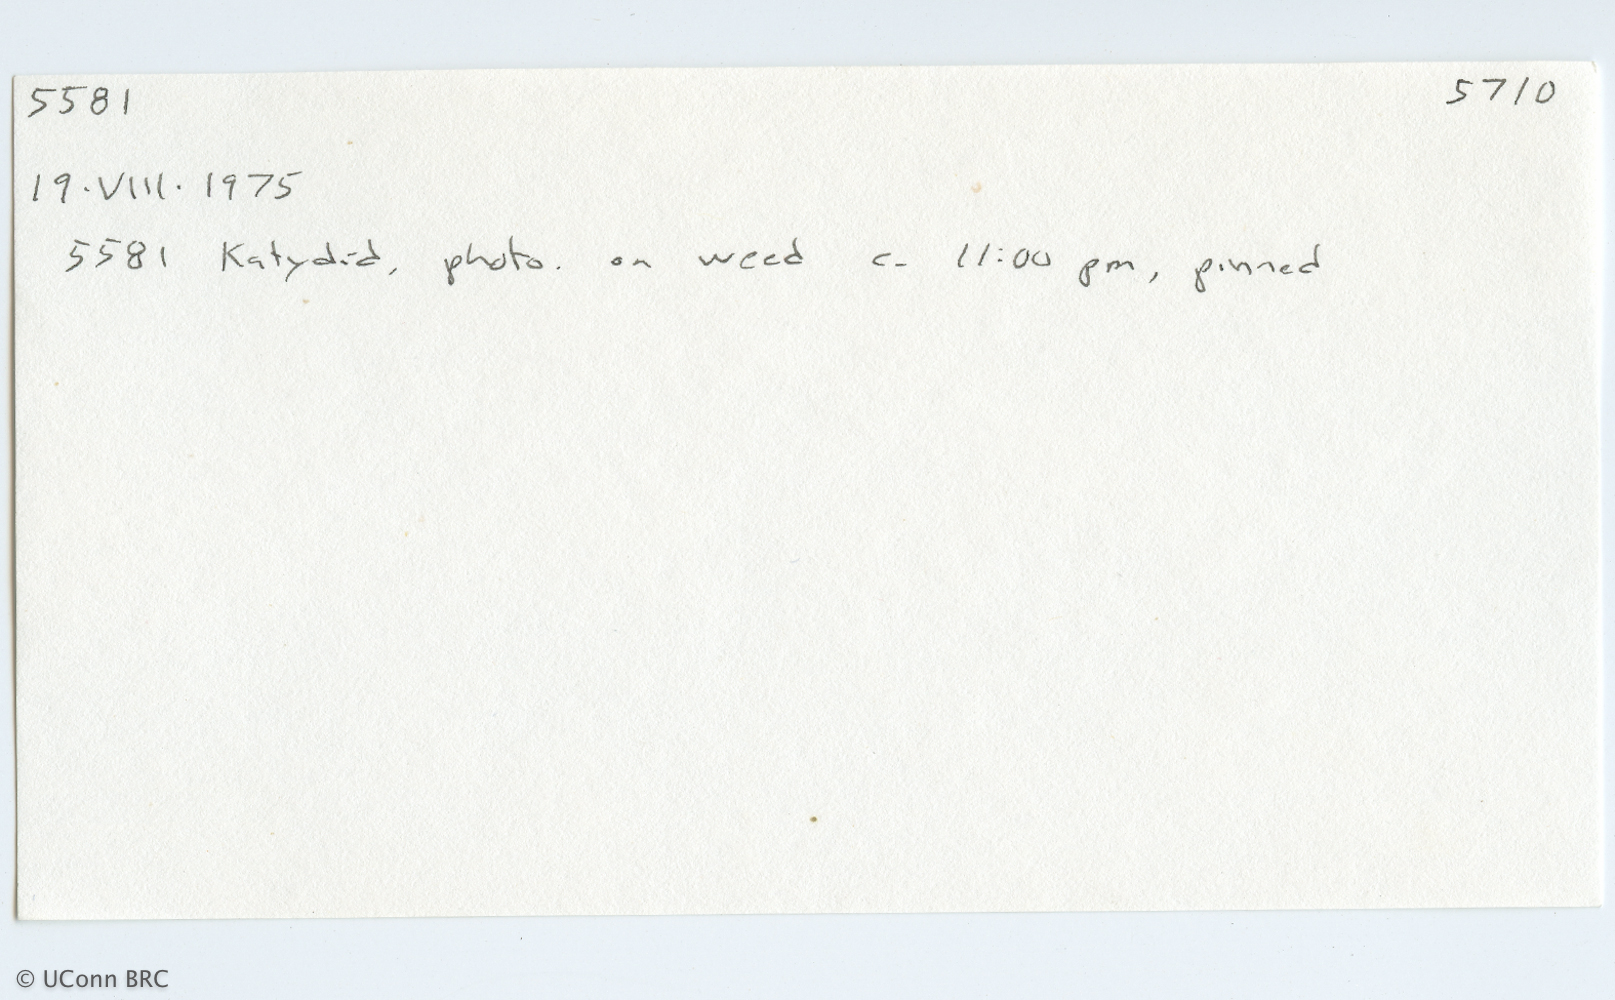 5581 5710
19.VIII.1975
5581 Katydid, photo. on weed c- 11:00 pm, pinned
© UConn BRC